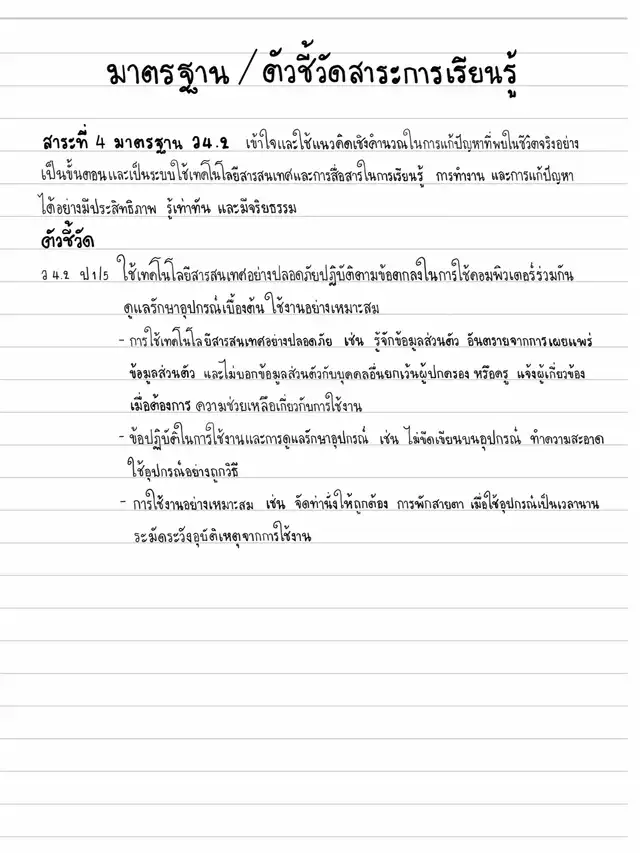 มาตรฐาน / ตัวชี้วัดสาระการเรียนรู้
สาระที่ 4 มาตรฐาน ว4.2 เข้าใจและใช้แนวคิดเชิงคำนวณในการแก้ปัญหาที่พบในชีวิตจริงอย่าง
เป็นขั้นตอนและเป็นระบบใช้เทคโนโลยีสารสนเทศและการสื่อสารในการเรียนรู้ การทำงาน และการแก้ปัญหา
ได้อย่างมีประสิทธิภาพ รู้เท่าทัน และมีจริยธรรม
ตัวชี้วัด
ว 4.2 ป1/5 ใช้เทคโนโลยีสารสนเทศอย่างปลอดภัยปฏิบัติตามข้อตกลงในการใช้คอมพิวเตอร์ร่วมกัน
ดูแลรักษาอุปกรณ์เบื้องต้น ใช้งานอย่างเหมาะสม
- การใช้เทคโนโลยีสารสนเทศอย่างปลอดภัย เช่น รู้จักข้อมูลส่วนตัว อันตรายจากการเผยแพร่
ข้อมูลส่วนตัว และไม่บอกข้อมูลส่วนตัวกับบุคคลอื่นยกเว้นผู้ปกครอง หรือครู แจ้งผู้เกี่ยวข้อง
เมื่อต้องการ ความช่วยเหลือเกี่ยวกับการใช้งาน
- ข้อปฏิบัติในการใช้งานและการดูแลรักษาอุปกรณ์ เช่น ไม่ขีดเขียนบนอุปกรณ์ ทำความสะอาด
ใช้อุปกรณ์อย่างถูกวิธี
- การใช้งานอย่างเหมาะสม เช่น จัดท่านั่งให้ถูกต้อง การพักสายตา เมื่อใช้อุปกรณ์เป็นเวลานาน
ระมัดระวังอุบัติเหตุจากการใช้งาน